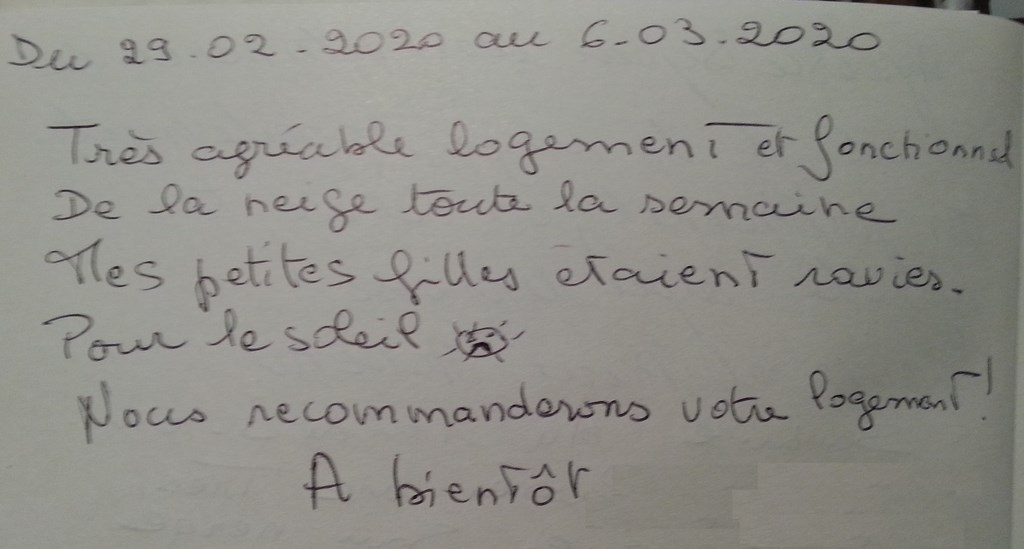 Du 29.02.2020 au 6.03.2020
Très agréable logement et fonctionnel
De la neige toute la semaine
Mes petites filles étaient ravies.
Pour le soleil
Nous recommanderons votre logement!
A bientôt